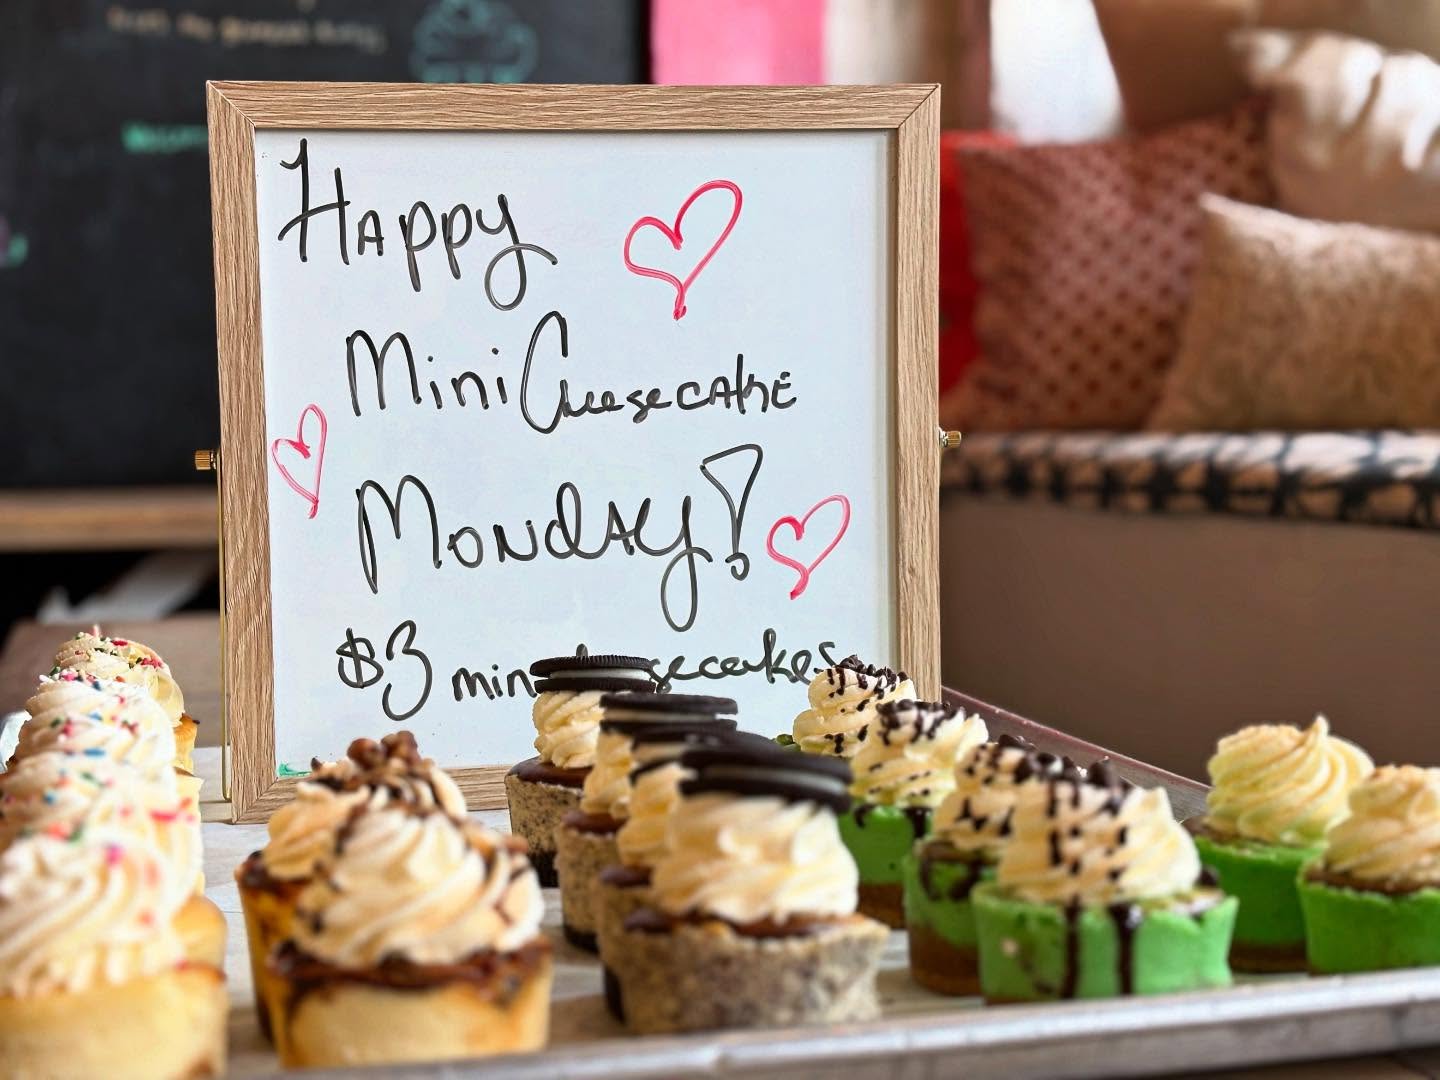 Happy
Mini Cheesecake
Monday!
$3 mini cheesecakes